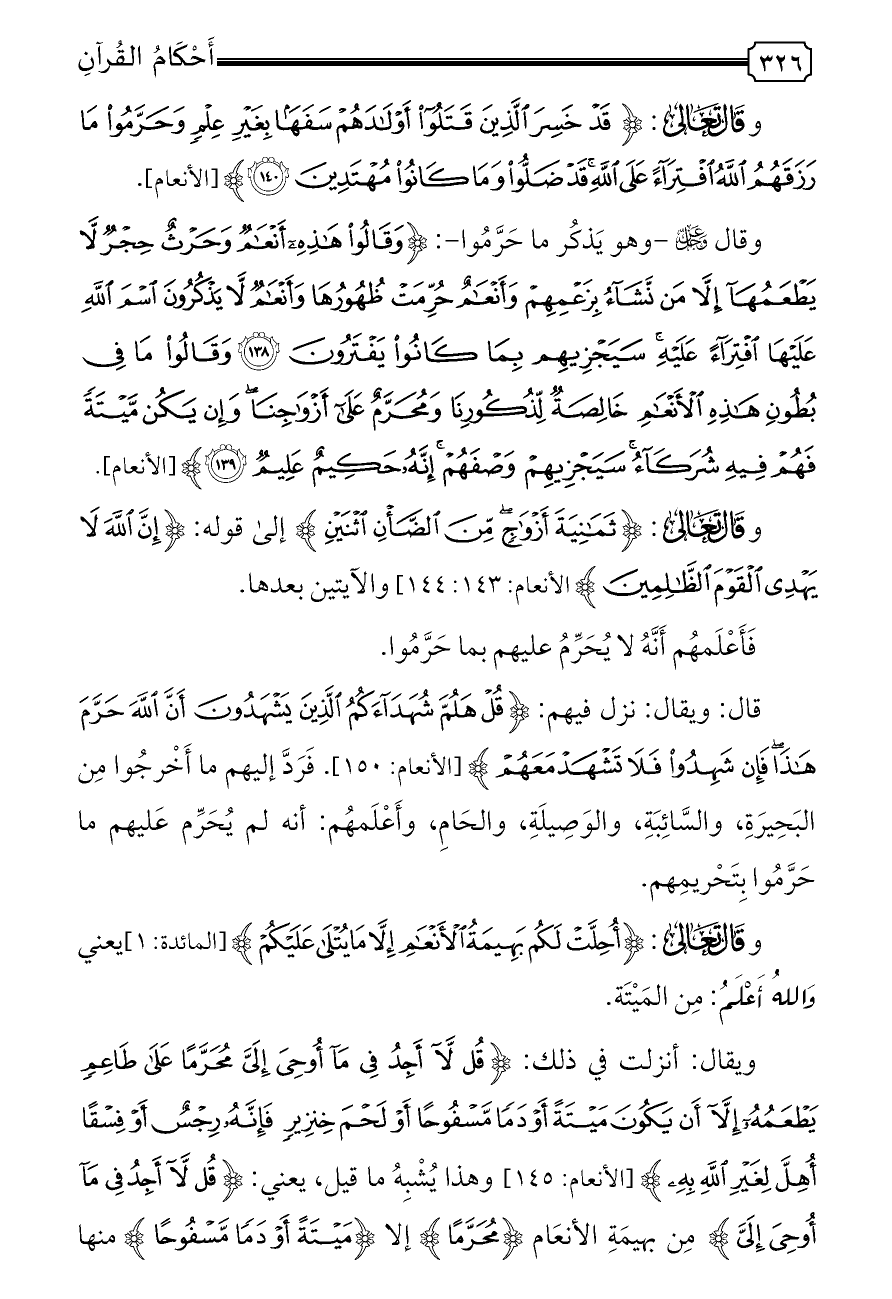 أَحْكَامُ القُرآنِ ٣٢٦
و قَالَ تَعَالَىٰ: ﴿ قَدْ خَسِرَ ٱلَّذِينَ قَتَلُوٓا۟ أَوْلَٰدَهُمْ سَفَهًۢا بِغَيْرِ عِلْمٍۢ وَحَرَّمُوا۟ مَا
رَزَقَهُمُ ٱللَّهُ ٱفْتِرَآءً عَلَى ٱللَّهِ ۚ قَدْ ضَلُّوا۟ وَمَا كَانُوا۟ مُهْتَدِينَ ١٤٠ ﴾ [الأنعام].
وقال ﷿ -وهو يَذكُر ما حَرَّمُوا-: ﴿ وَقَالُوا۟ هَٰذِهِۦٓ أَنْعَٰمٌۭ وَحَرْثٌ حِجْرٌۭ لَّا
يَطْعَمُهَآ إِلَّا مَن نَّشَآءُ بِزَعْمِهِمْ وَأَنْعَٰمٌ حُرِّمَتْ ظُهُورُهَا وَأَنْعَٰمٌۭ لَّا يَذْكُرُونَ ٱسْمَ ٱللَّهِ
عَلَيْهَا ٱفْتِرَآءً عَلَيْهِ ۚ سَيَجْزِيهِم بِمَا كَانُوا۟ يَفْتَرُونَ ١٣٨ وَقَالُوا۟ مَا فِى
بُطُونِ هَٰذِهِ ٱلْأَنْعَٰمِ خَالِصَةٌۭ لِّذُكُورِنَا وَمُحَرَّمٌ عَلَىٰٓ أَزْوَٰجِنَا ۖ وَإِن يَكُن مَّيْتَةًۭ
فَهُمْ فِيهِ شُرَكَآءُ ۚ سَيَجْزِيهِمْ وَصْفَهُمْ ۚ إِنَّهُۥ حَكِيمٌ عَلِيمٌۭ ١٣٩ ﴾ [الأنعام].
و قَالَ تَعَالَىٰ: ﴿ ثَمَٰنِيَةَ أَزْوَٰجٍۢ ۖ مِّنَ ٱلضَّأْنِ ٱثْنَيْنِ ﴾ إلىٰ قوله: ﴿ إِنَّ ٱللَّهَ لَا
يَهْدِى ٱلْقَوْمَ ٱلظَّٰلِمِينَ ﴾ الأنعام: ١٤٣: ١٤٤] والآيتين بعدها.
فَأَعْلَمهُم أَنَّهُ لا يُحَرِّمُ عليهم بما حَرَّمُوا.
قال: ويقال: نزل فيهم: ﴿ قُلْ هَلُمَّ شُهَدَآءَكُمُ ٱلَّذِينَ يَشْهَدُونَ أَنَّ ٱللَّهَ حَرَّمَ
هَٰذَا ۖ فَإِن شَهِدُوا۟ فَلَا تَشْهَدْ مَعَهُمْ ﴾ [الأنعام: ١٥٠]. فَرَدَّ إليهم ما أَخْرجُوا مِن
البَحِيرَةِ، والسَّائِبَةِ، والوَصِيلَةِ، والحَامِ، وأَعْلَمهُم: أنه لم يُحَرِّم عَليهم ما
حَرَّمُوا بِتَحْريمِهم.
و قَالَ تَعَالَىٰ: ﴿ أُحِلَّتْ لَكُم بَهِيمَةُ ٱلْأَنْعَٰمِ إِلَّا مَا يُتْلَىٰ عَلَيْكُمْ ﴾ [المائدة: ١]يعني
وَاللهُ أَعْلَمُ: مِن المَيْتَة.
ويقال: أنزلت في ذلك: ﴿ قُل لَّآ أَجِدُ فِى مَآ أُوحِىَ إِلَىَّ مُحَرَّمًا عَلَىٰ طَاعِمٍۢ
يَطْعَمُهُۥٓ إِلَّآ أَن يَكُونَ مَيْتَةً أَوْ دَمًۭا مَّسْفُوحًا أَوْ لَحْمَ خِنزِيرٍۢ فَإِنَّهُۥ رِجْسٌ أَوْ فِسْقًا
أُهِلَّ لِغَيْرِ ٱللَّهِ بِهِۦ ﴾ [الأنعام: ١٤٥] وهذا يُشْبِهُ ما قيل، يعني: ﴿ قُل لَّآ أَجِدُ فِى مَآ
أُوحِىَ إِلَىَّ ﴾ مِن بهيمَةِ الأنعَام ﴿ مُحَرَّمًا ﴾ إلا ﴿ مَيْتَةً أَوْ دَمًۭا مَّسْفُوحًا ﴾ منها